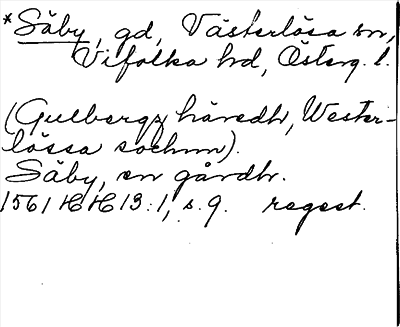 *Säby, gd, Västerlösa sn,
Vifolka hd, Österg. l.
(Gulbergz häredh, Wester-
lössa sochnn).
Säby, en gårdh.
1561 HH 13:1, s. 9. regest.